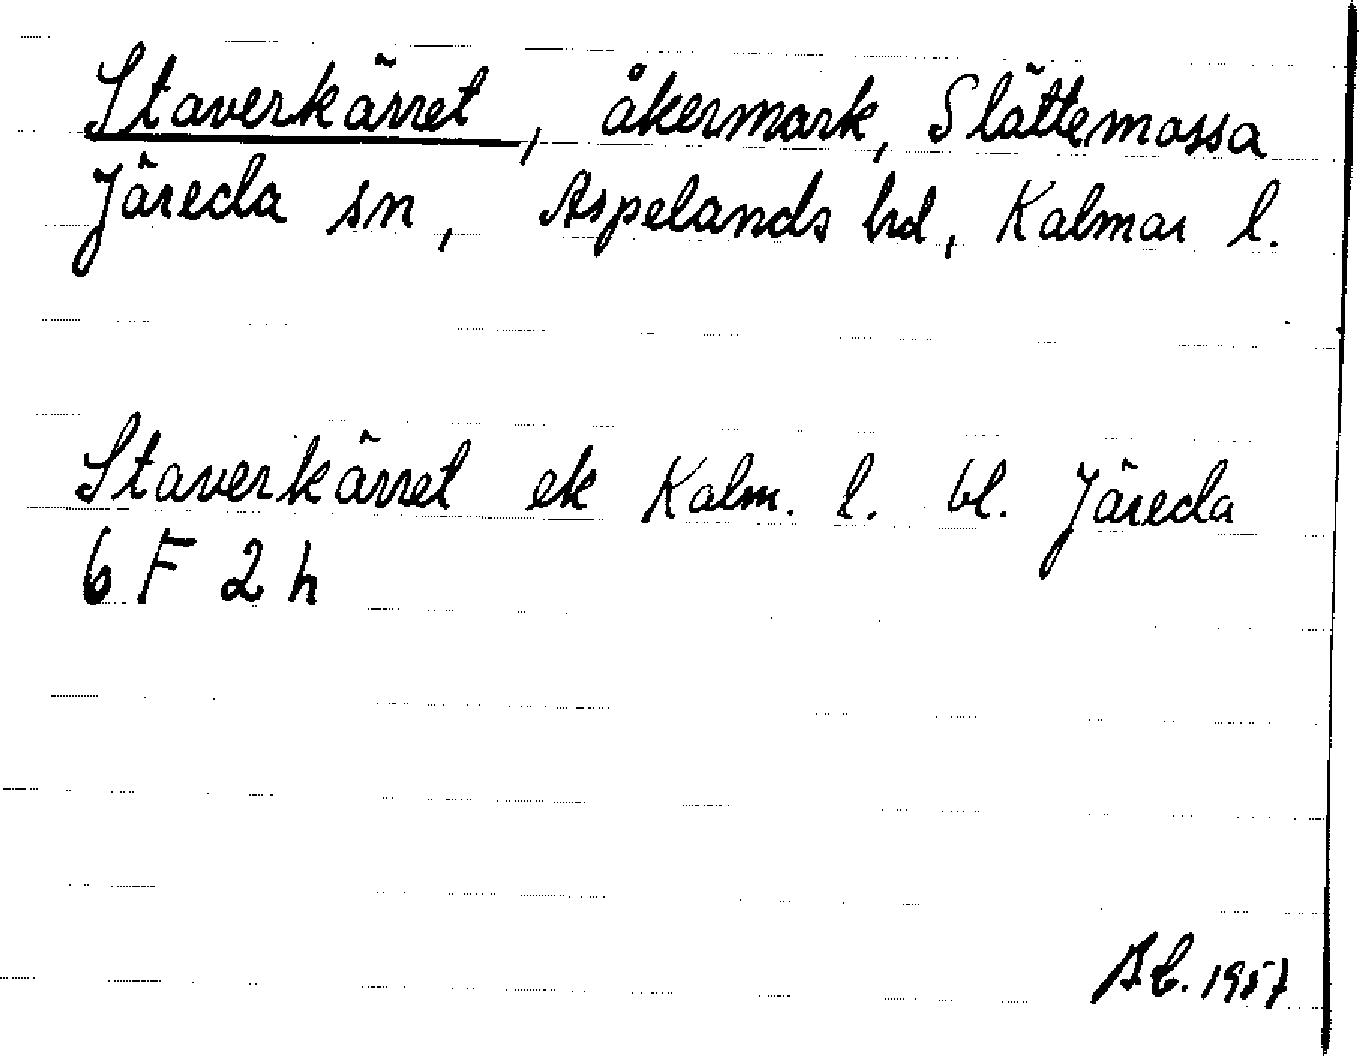 Staverkärret, åkermark, Slättemossa
Järeda sn, Aspelands hd, Kalmar l.
Staverkärret ek Kalm. l. bl. Järeda
6 F 2 h
Ab. 1957